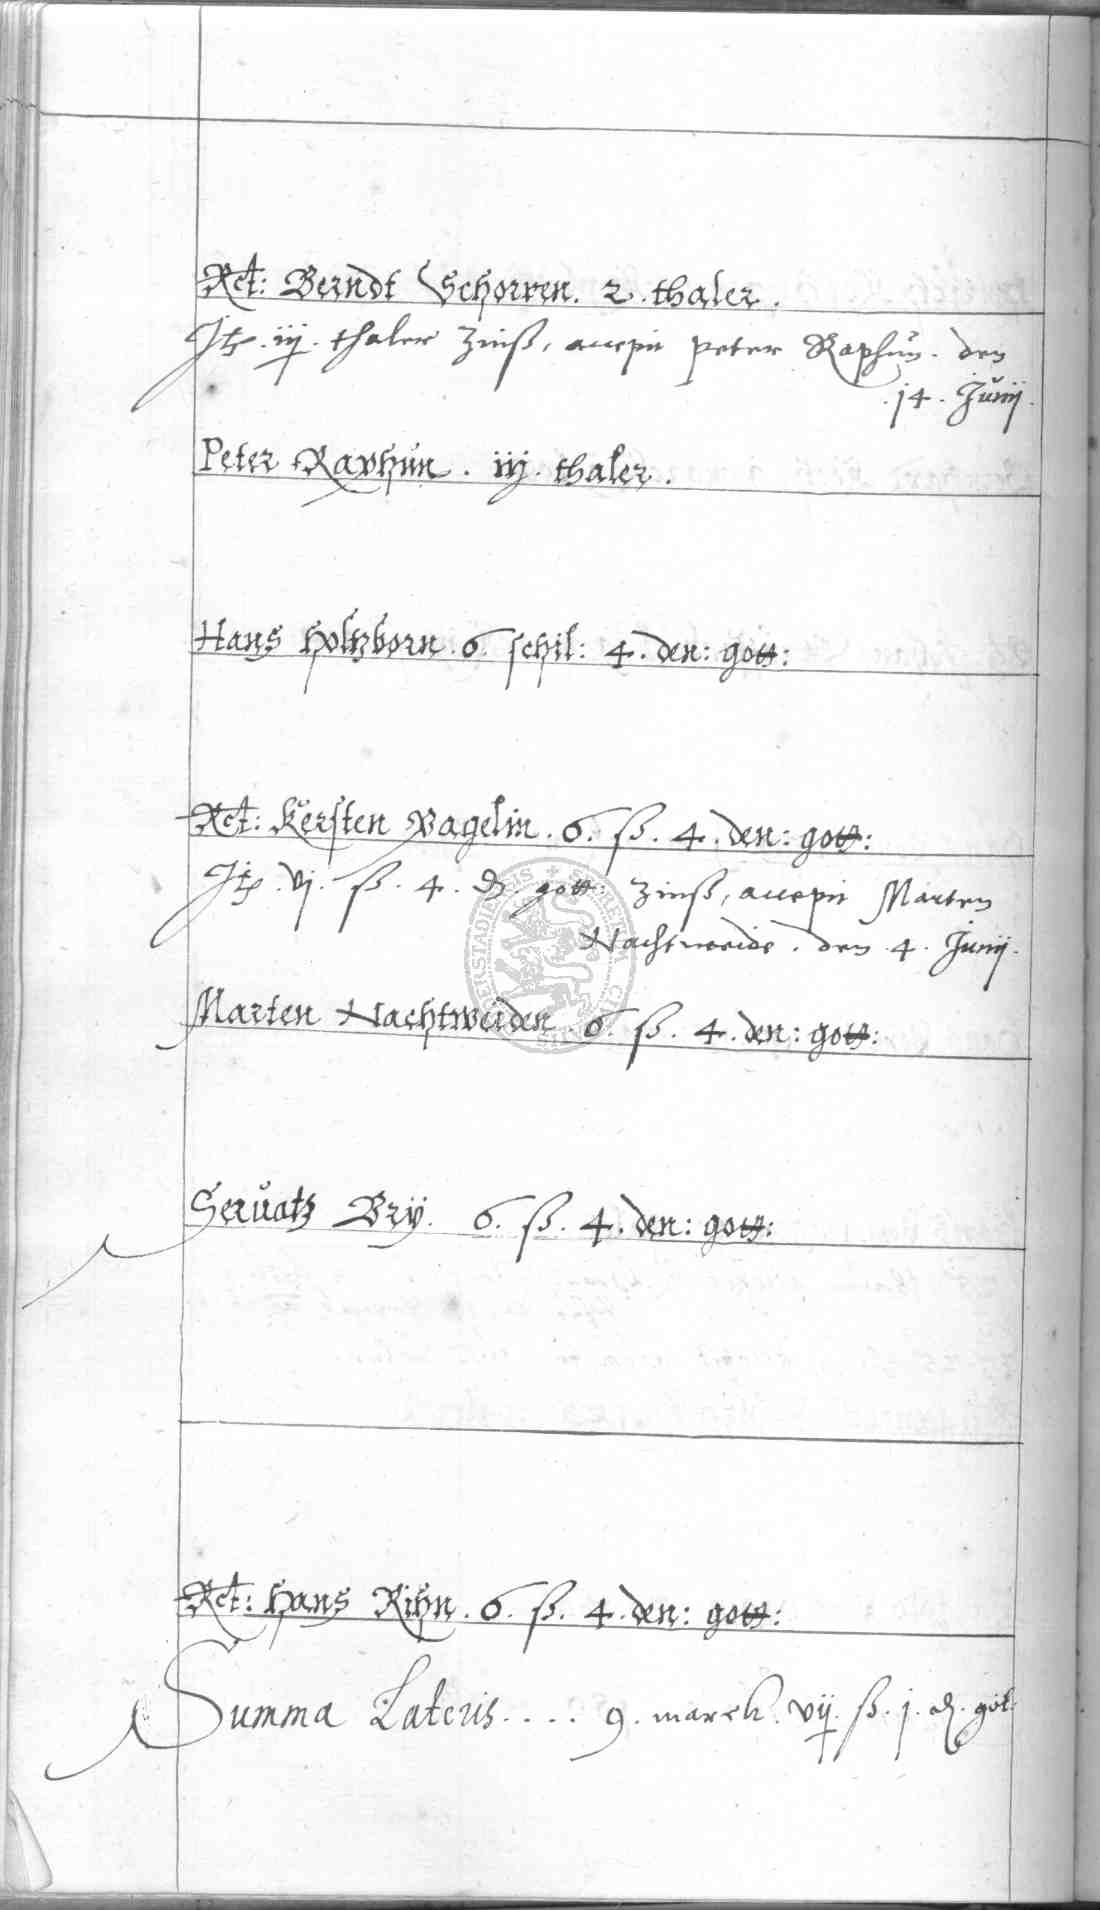 Rct: Berndt Schorren. 2. thaler.
Itz. iij. thaler Zinß, accepit Peter Raphun. den
.14. Junij.
Peter Raphun. iij. thaler.
Hans Holtzborn. 6. schil: 4. den: gott:
Rct: Kersten Vagelin. 6. ß. 4. den: gott:
Itz. vj. ß. 4. d. gott: Zinß, accepit Marten
Nachtweide. den .4. Junij.
Marten Nachtweiden. 6. ß. 4. den: gott:
Servatz Brÿ. 6. ß. 4. den: gott:
Rct: Hans Rihn. 6. ß. 4. den: gott:
Summa Lateris.... 9. march. vij. ß. j. d. got: